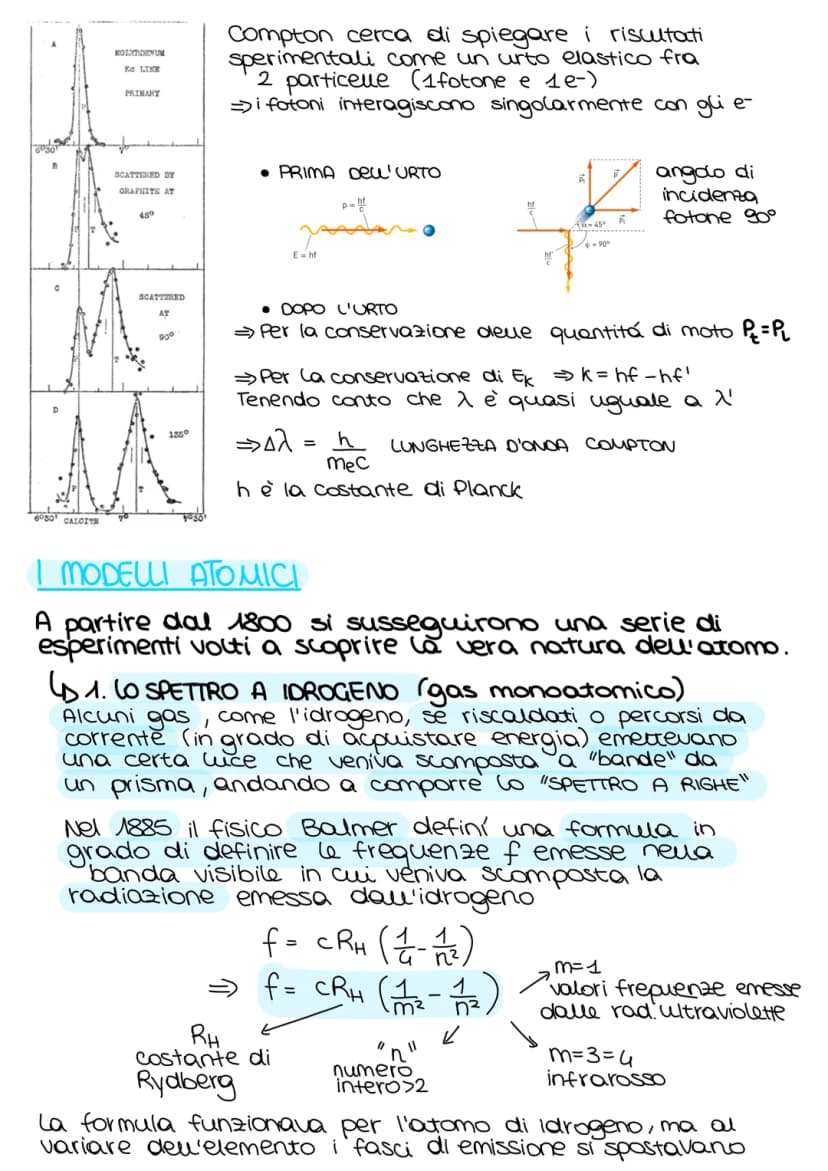 A
MOLYBDENUM
Kα LINE
PRIMARY
P
6°30'
7°
B
SCATTERED BY
GRAPHITE AT
45°
P
T
C
SCATTERED
AT
90°
D
135°
P
T
6°30'
CALCITE
7°
7°30'
Compton cerca di spiegare i risultati
sperimentali come un urto elastico fra
2 particelle (1 fotone e 1e-)
⇒ i fotoni interagiscono singolarmente con gli e-
• PRIMA DELL'URTO
p = hf/c
E = hf
hf/c
hf'/c
α = 45°
φ = 90°
angolo di
incidenza
fotone 90°
• DOPO L'URTO
⇒ Per la conservazione delle quantitá di moto Pt = Pi
⇒ Per la conservazione di Ek ⇒ K = hf - hf'
Tenendo conto che λ è quasi uguale a λ'
⇒ Δλ = h/mec LUNGHEZZA D'ONDA COMPTON
h è la costante di Planck
I MODELLI ATOMICI
A partire dal 1800 si susseguirono una serie di
esperimenti volti a scoprire la vera natura dell'atomo.
↳ 1. LO SPETTRO A IDROGENO (gas monoatomico)
Alcuni gas, come l'idrogeno, se riscaldati o percorsi da
corrente (in grado di acquistare energia) emettevano
una certa luce che veniva scomposta a "bande" da
un prisma, andando a comporre lo "SPETTRO A RIGHE"
Nel 1885 il fisico Balmer definí una formula in
grado di definire le frequenze f emesse nella
banda visibile in cui veniva scomposta la
radiazione emessa dall'idrogeno
f = cRH (1/4 - 1/n²)
⇒ f = cRH (1/m² - 1/n²)
m=1
valori frequenze emesse
dalle rad. ultraviolette
RH
costante di
Rydberg
"n"
numero
intero>2
m=3=4
infrarosso
La formula funzionava per l'atomo di idrogeno, ma al
variare dell'elemento i fasci di emissione si spostavano